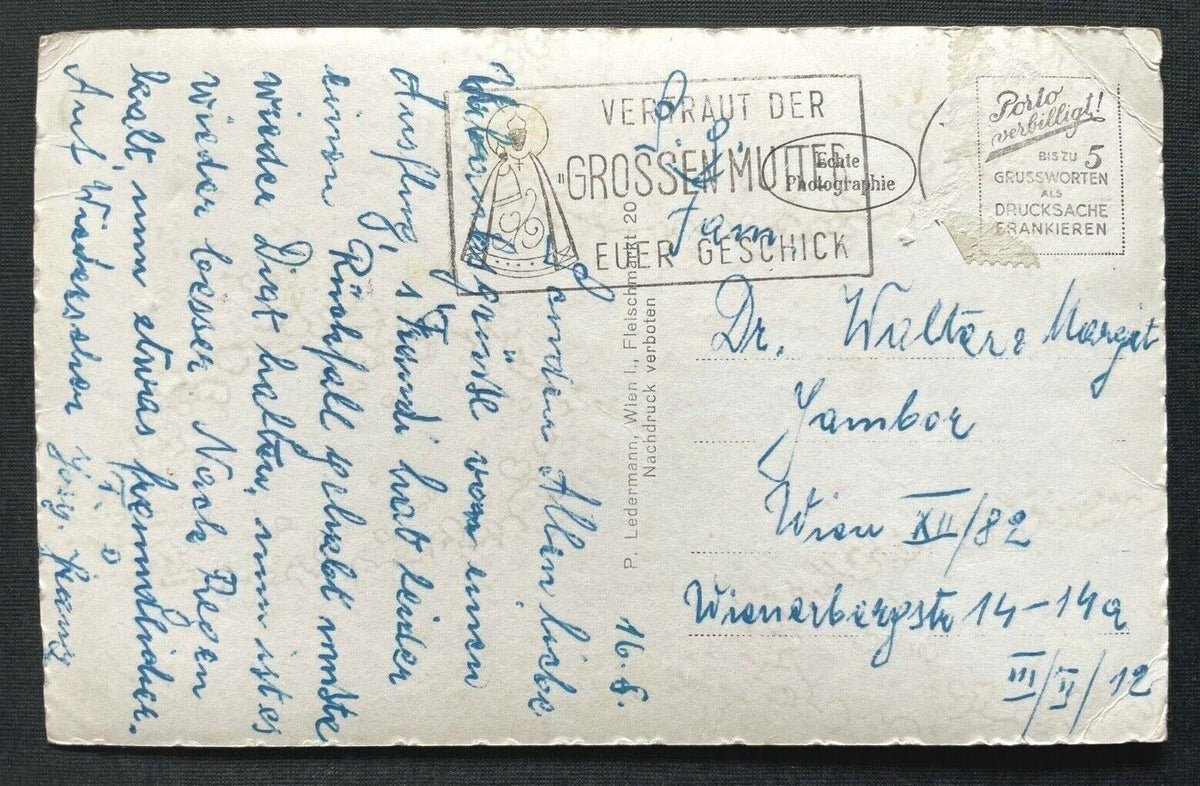 VERTRAUT DER
"GROSSEN MUTTER
EUER GESCHICK
Echte
Photographie
Porto
verbilligt!
BIS ZU 5
GRUSSWORTEN
ALS
DRUCKSACHE
FRANKIEREN
P. Ledermann, Wien I., Fleischmarkt 20
Nachdruck verboten
Fam
Dr. Walter Margit
Jambor
Wien XII/82
Wienerbergstr 14-14a
III/II/12
16. 8.
Allen liebe
grüße von einen
Ausflug, Kandi hab leider
einen Rückfall gehabt mußte
wieder Diät halten, nun ist es
wieder besser Nach Regen
kalt, nun etwas freundlicher.
Auf Wiedersehen